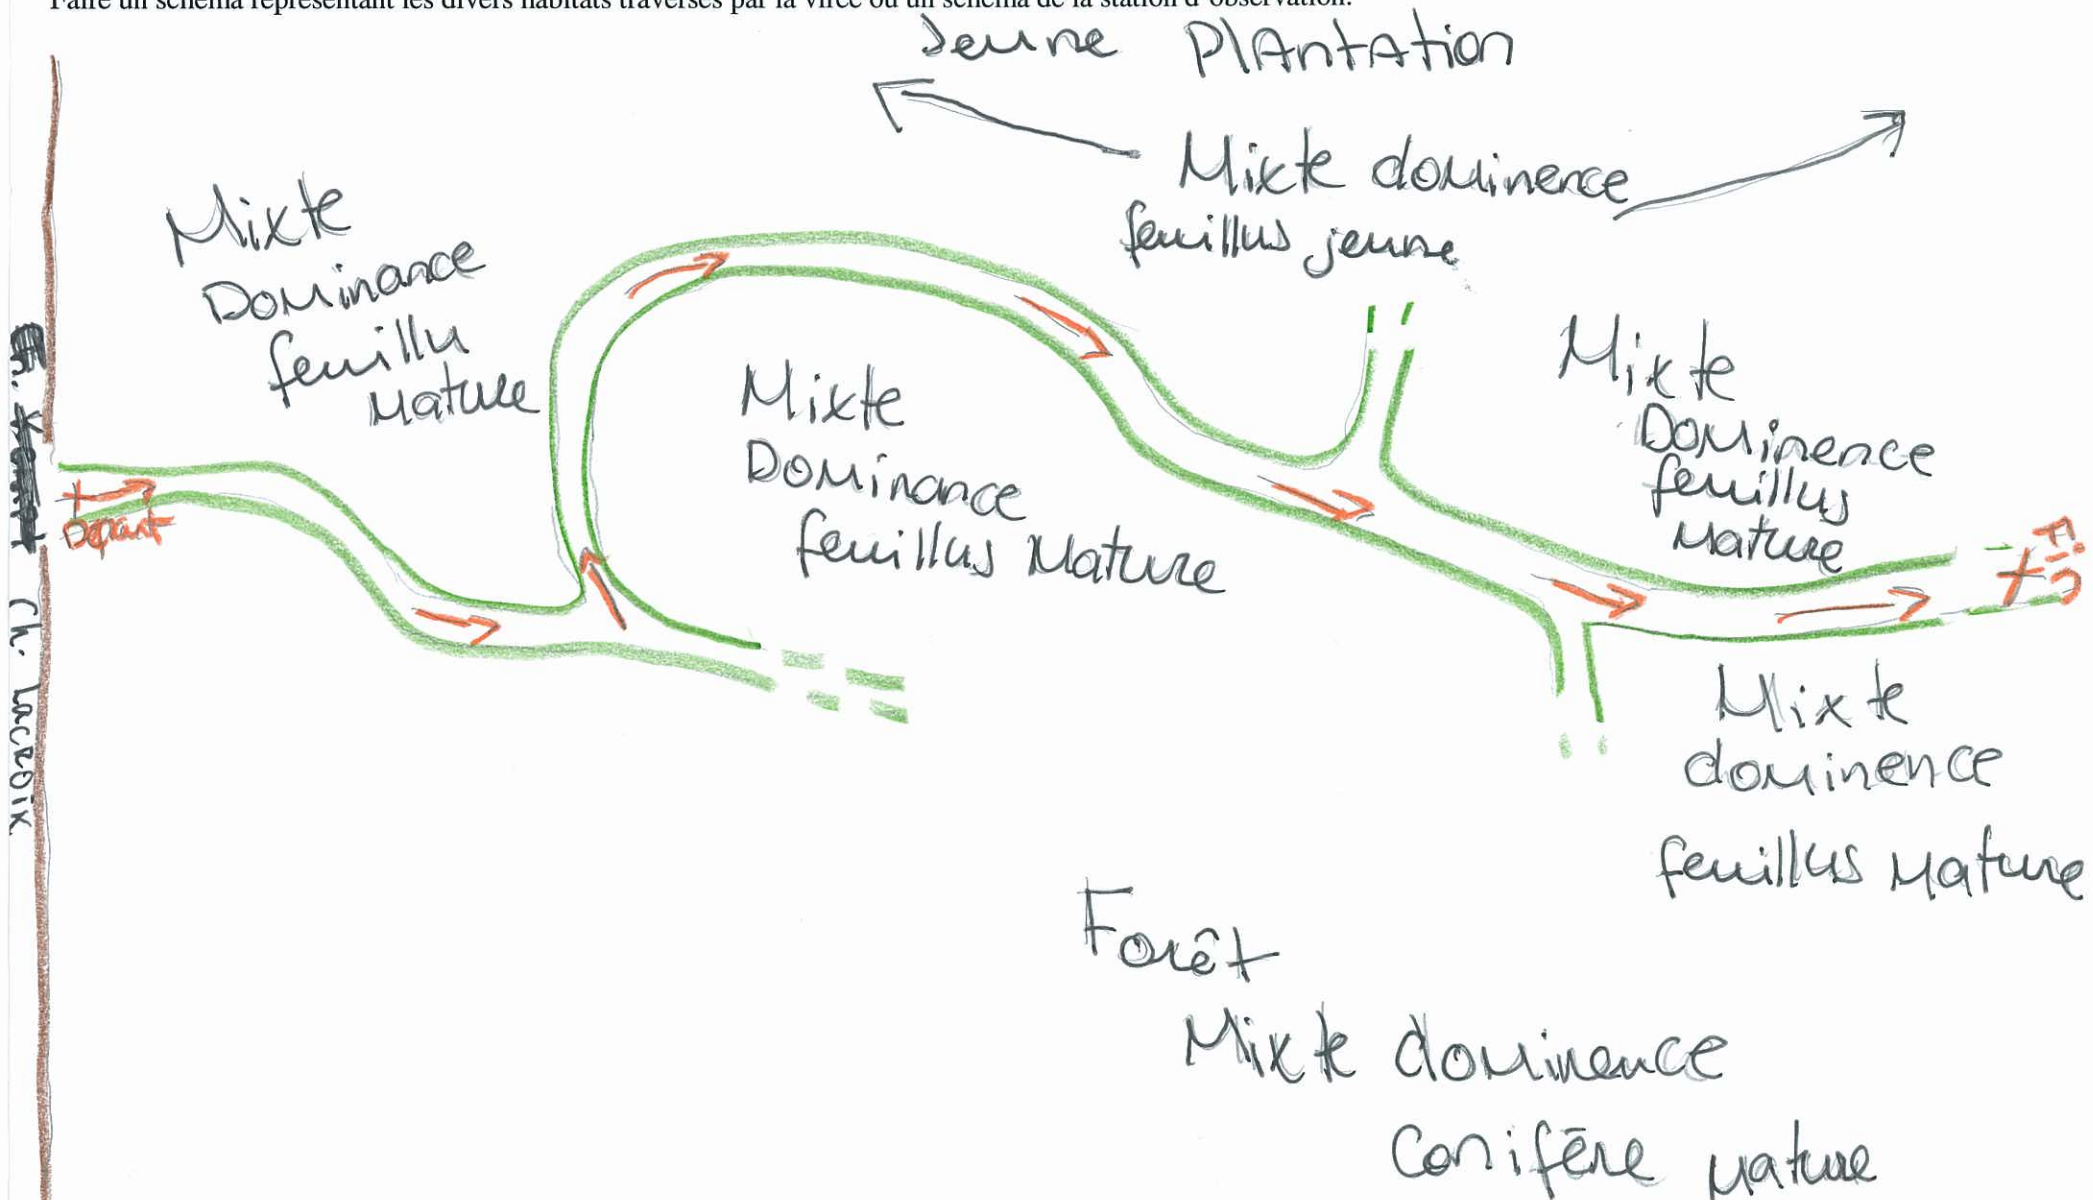 Faire un schéma représentant les divers habitats traversés par la virée ou un schéma de la station d'observation.
Jeune PlAntAtion
Mixte dominence
feuillus jeune
Mixte
Dominance
feuillu
Mature
Mixte
Dominance
feuillus Mature
Mixte
Dominence
feuillus
Mature
Départ
Fin
Ch. Lacroix
Mixte
dominence
feuillus Mature
Forêt
Mixte dominence
Conifēre mature